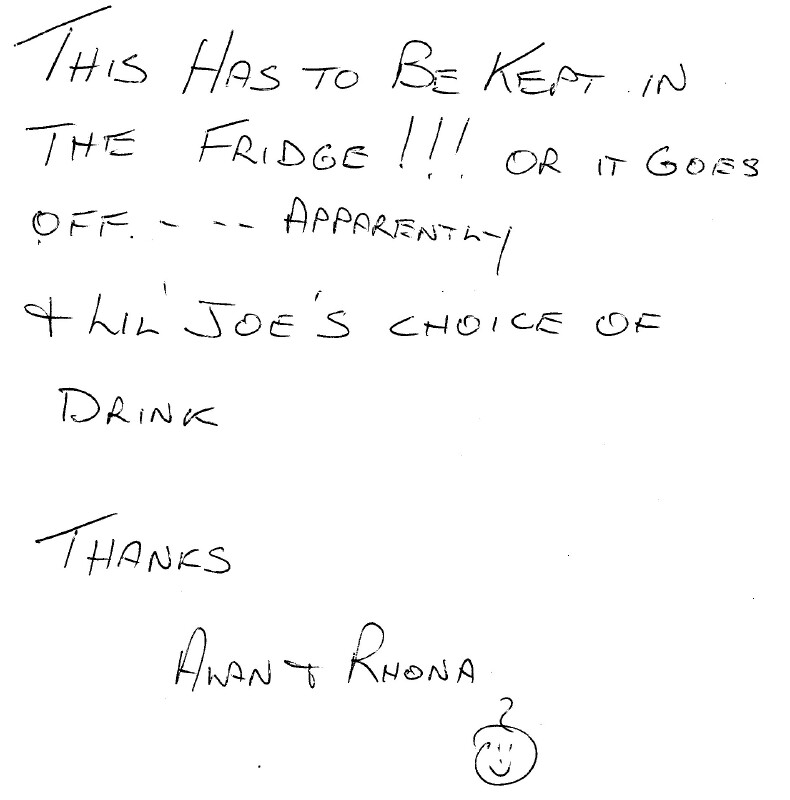 THIS HAS TO BE KEPT IN
THE FRIDGE!!! OR IT GOES
OFF. - -- APPARENTLY
& LIL' JOE'S CHOICE OF
DRINK
THANKS
ALAN + RHONA